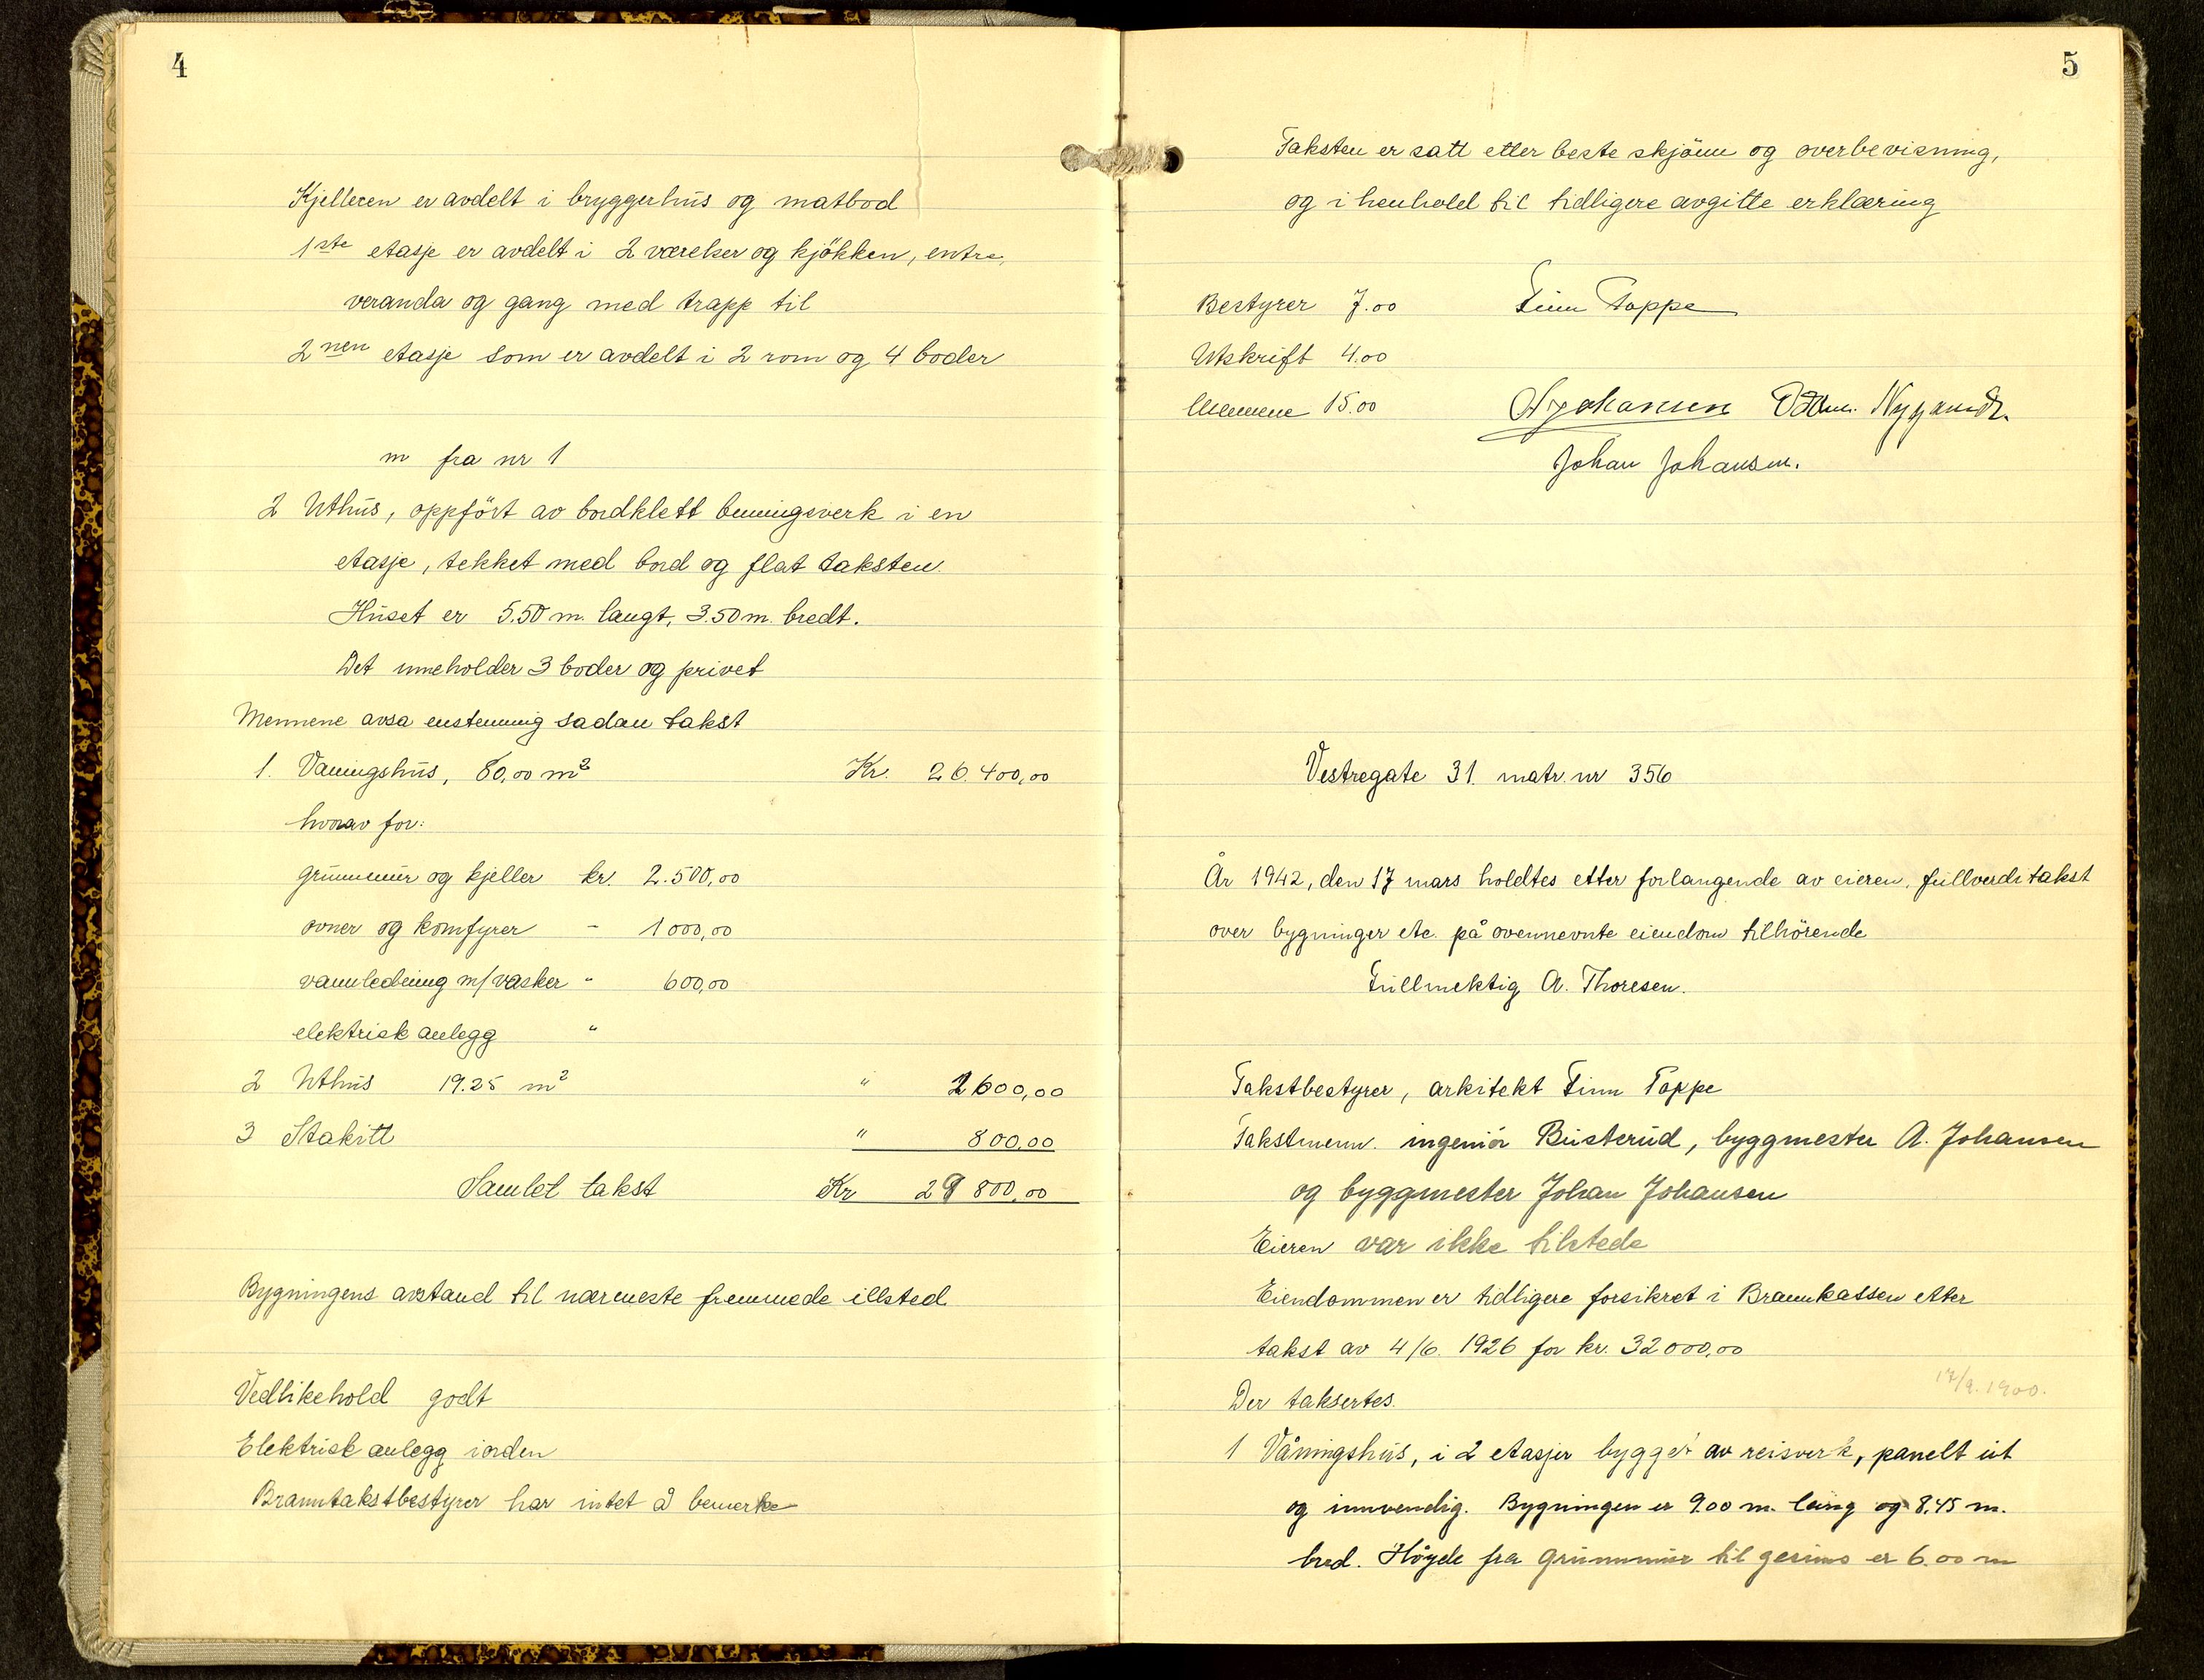 4
Kjelleren er avdelt i bryggerhus og matbod
1ste etasje er avdelt i 2 værelser og kjökken, entre,
veranda og gang med trapp til
2nen etasje som er avdelt i 2 rom og 4 boder
m fra nr 1
2 Uthus, oppfört av bordklett binningsverk i en
etasje, tekket med bord og flat taksten.
Huset er 5.50 m. langt, 3.50 m. bredt.
Det inneholder 3 boder og privet
Mennene avsa enstemmig sadan takst
1. Vaningshus, 80,00 m2 Kr. 26.400,00
hvorav for:
grunnmur og kjeller kr. 2.500,00
ovner og komfyrer - 1000,00
vannledning m/vasker " 600,00
elektrisk anlegg "
2 Uthus 19.25 m2 " 2600,00
3 Stakitt " 800,00
Samlet takst Kr 29 800,00
Bygningens avstand til nærmeste fremmede illsted
Vedlikehold godt
Elektrisk anlegg iorden
Branntakstbestyrer har intet å bemerke
5
Taksten er satt etter beste skjönn og overbevisning,
og i henhold til tidligere avgitte erklæring
Bestyrer 7.00 Finn Toppe
Utskrift 4.00
Mennene 15.00 A Johansen
Johan Johansen.
Vestregate 31. matr. nr 356
År 1942, den 17 mars holdtes etter forlangende av eieren, fullverditakst
over bygninger etc. på ovennevnte eiendom tilhörende
Fullmektig A. Thoresen.
Takstbestyrer, arkitekt Finn Toppe
Takstmenn. ingeniör Busterud, byggmester A. Johansen
og byggmester Johan Johansen
Eieren var ikke tilstede
Eiendommen er tidligere forsikret i Brannkassen etter
takst av 4/6. 1926 for kr. 32000,00
17/9. 1900.
Der taksertes.
1 Våningshus, i 2 etasjer bygget av reisverk, panelt ut
og innvendig. Bygningen er 9.00 m. lang og 8.45 m.
bred. Höyde fra Grunnmur til gesims er 6.00 m